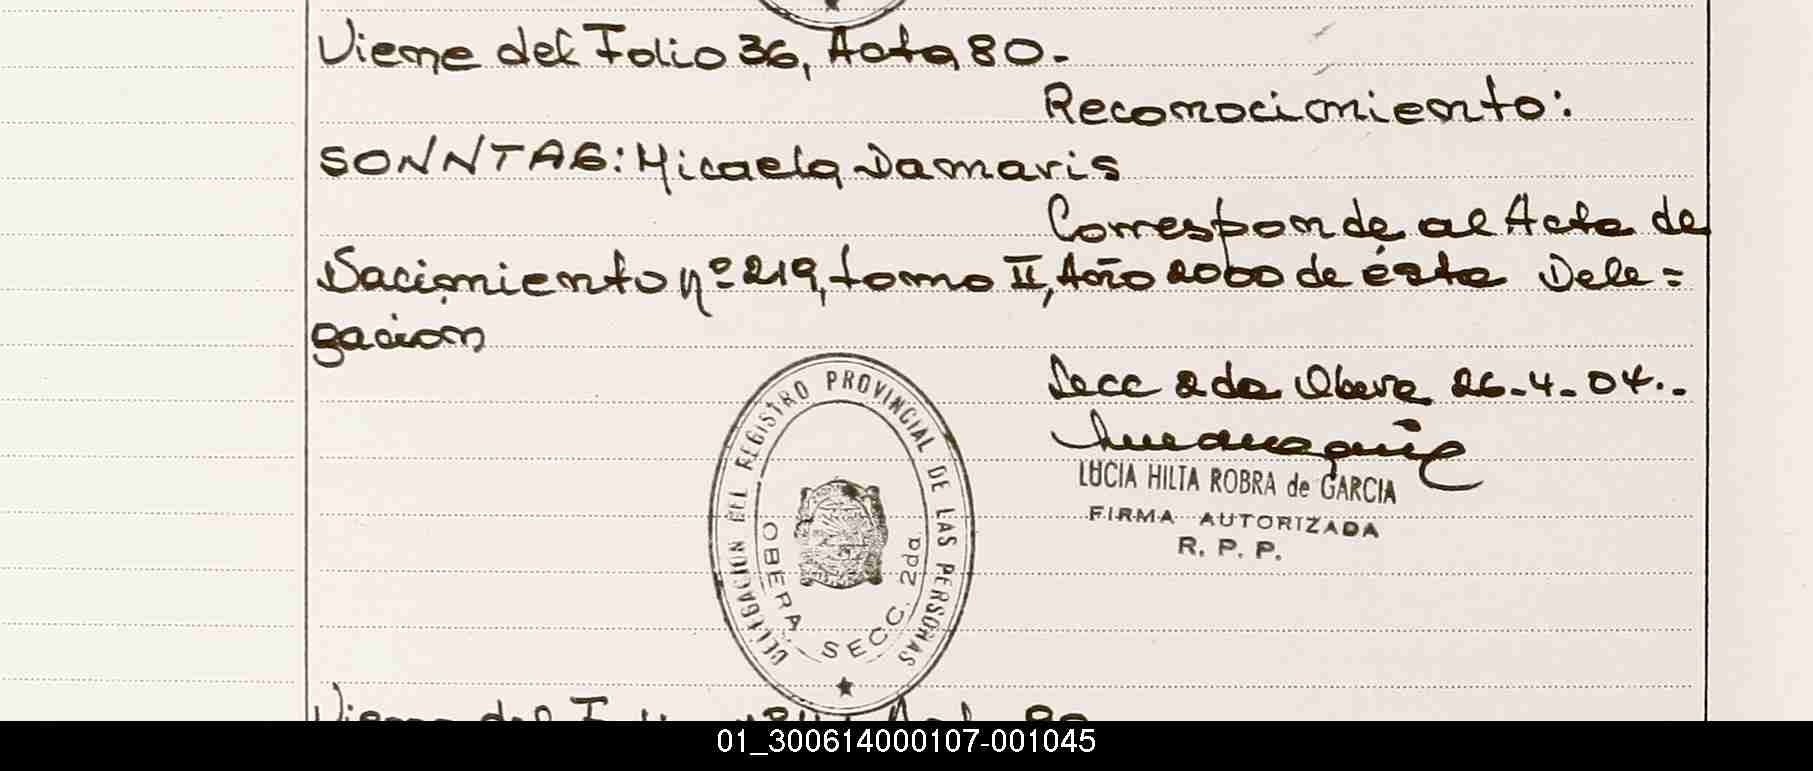 Viene del Folio 36, Acta 80.-
Reconocimiento:
SONNTAG: Micaela Damaris
Corresponde al Acta de
Nacimiento nº 219, tomo II, Año 2000 de ésta Dele=
gacion
Secc 2da Obera 26-4-04.-
LUCIA HILTA ROBRA de GARCIA
FIRMA AUTORIZADA
R. P. P.
DELEGACION DEL REGISTRO PROVINCIAL DE LAS PERSONAS
OBERA SECC. 2da.
Viene del
01_300614000107-001045